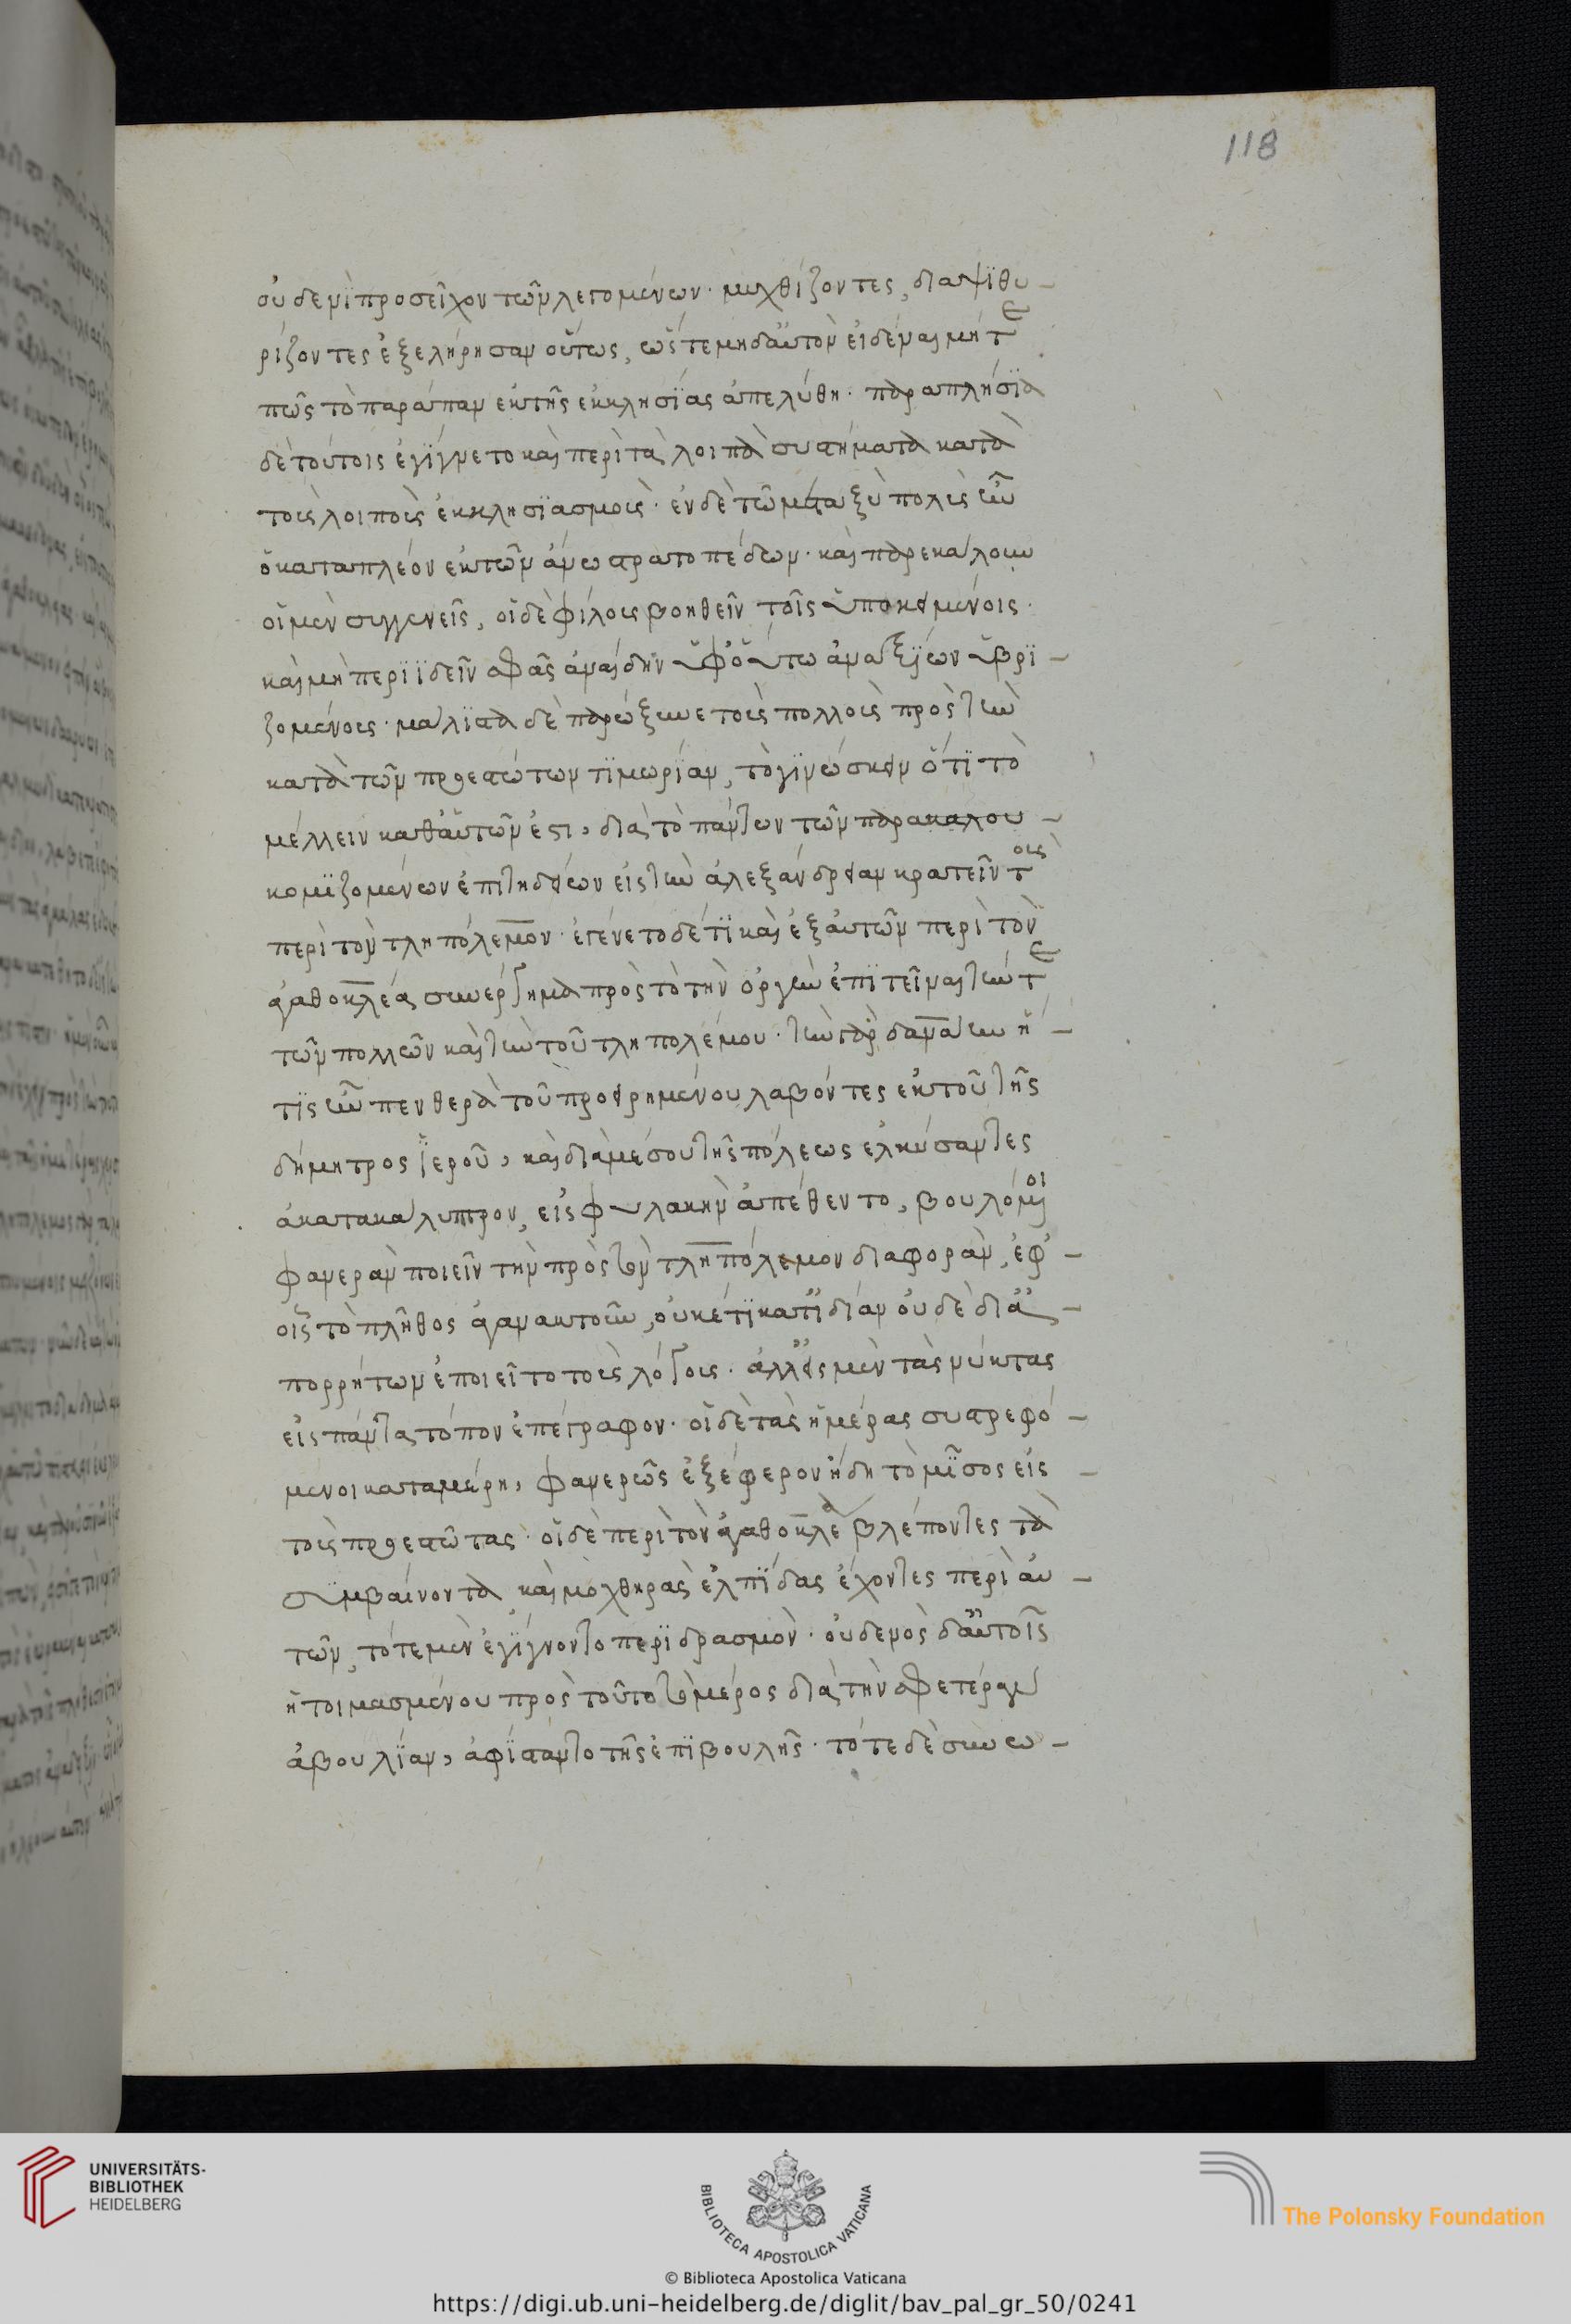 118
οὐδενὶ προσεῖχον τῶν λεγομένων· μυχθίζοντες, διαψϊθυ-
ρίζοντες ἐξελήρησαν οὕτως, ὥστε μηδ' αὐτὸν εἰδέναι μήτε
πῶς τὸ παράπαν ἐκ τῆς ἐκκλησίας ἀπελύθη· παραπλήσϊα
δὲ τούτοις ἐγίγνετο καὶ περὶ τὰ λοιπὰ συστήματα κατὰ
τοὺς λοιποὺς ἐκκλησϊασμούς· ἐν δὲ τῶ μεταξὺ πολὺς ἦν
ὁ καταπλέον ἐκ τῶν ἄνω στρατοπέδων· καὶ παρεκάλουν
οἱ μὲν συγγενεῖς, οἱ δὲ φίλους βοηθεῖν τοῖς ὑποκειμένοις·
καὶ μὴ περιϊδεῖν σφᾶς ἀναίδην ὑφ' οὕτω ἀναξϊων ὑβρϊ-
ζομένους· μάλϊστα δὲ παρώξυνε τοὺς πολλοὺς πρὸς τὴν
κατὰ τῶν προεστώτων τϊμωρίαν, τὸ γϊνώσκειν ὅτϊ τὸ
μέλλειν καθ' αὑτῶν ἐστι, διὰ τὸ πάντων τῶν παρακαλου-
κομϊζομένων ἐπιτηδείων εἰς τὴν ἀλεξάνδρειαν κρατεῖν τοὺς
περὶ τὸν τληπόλεμον· ἐγένετο δέ τϊ καὶ ἐξ αὐτῶν περὶ τὸν
ἀγαθοκλέα συνέργημα πρὸς τὸ τὴν ὀργὴν ἐπϊτεῖναι τήν τε
τῶν πολλῶν καὶ τὴν τοῦ τληπολέμου· τὴν γὰρ δανάην ἥ-
τϊς ἦν πενθερὰ τοῦ προειρημένου λαβόντες ἐκ τοῦ τῆς
δήμητρος ἱεροῦ, καὶ διὰ μέσου τῆς πόλεως ἑλκύσαντες
ἀκατακάλυπτον, εἰς φυλακὴν ἀπέθεντο, βουλόμενοι
φανερὰν ποιεῖν τὴν πρὸς τὸν τληπόλεμον διαφοράν, ἐφ'-
οἷς τὸ πλῆθος ἀγανακτοῦν, οὐκέτϊ κατ' ἰδίαν οὐδὲ δι' ἀ-
πορρήτων ἐποιεῖτο τοὺς λόγους· ἀλλ' εἰς μὲν τὰς νύκτας
εἰς πάντα τόπον ἐπέγραφον· οἱ δὲ τὰς ἡμέρας συστρεφό-
μενοι κατὰ μέρη, φανερῶς ἐξέφερον ἤδη τὸ μῖσος εἰς-
τοὺς προεστῶτας· οἱ δὲ περὶ τὸν ἀγαθοκλέα βλέποντες τὰ
συμβαίνοντα, καὶ μοχθηρὰς ἐλπϊδας ἔχοντες περὶ αὑ-
τῶν, τότε μὲν ἐγίγνοντο περὶ δρασμόν· οὐδενὸς δ' αὐτοῖς
ἡτοιμασμένου πρὸς τοῦτο τὸ μέρος διὰ τὴν σφετέραν
ἀβουλίαν, ἀφίσταντο τῆς ἐπϊβουλῆς· τότε δὲ συνω-
UNIVERSITÄTS-
BIBLIOTHEK
HEIDELBERG
BIBLIOTECA APOSTOLICA VATICANA
The Polonsky Foundation
© Biblioteca Apostolica Vaticana
https://digi.ub.uni-heidelberg.de/diglit/bav_pal_gr_50/0241